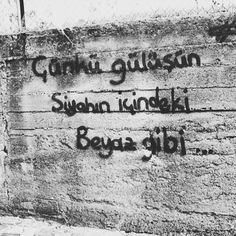 Çünkü gülüşün
Siyahın içindeki ...
Beyaz gibi ...